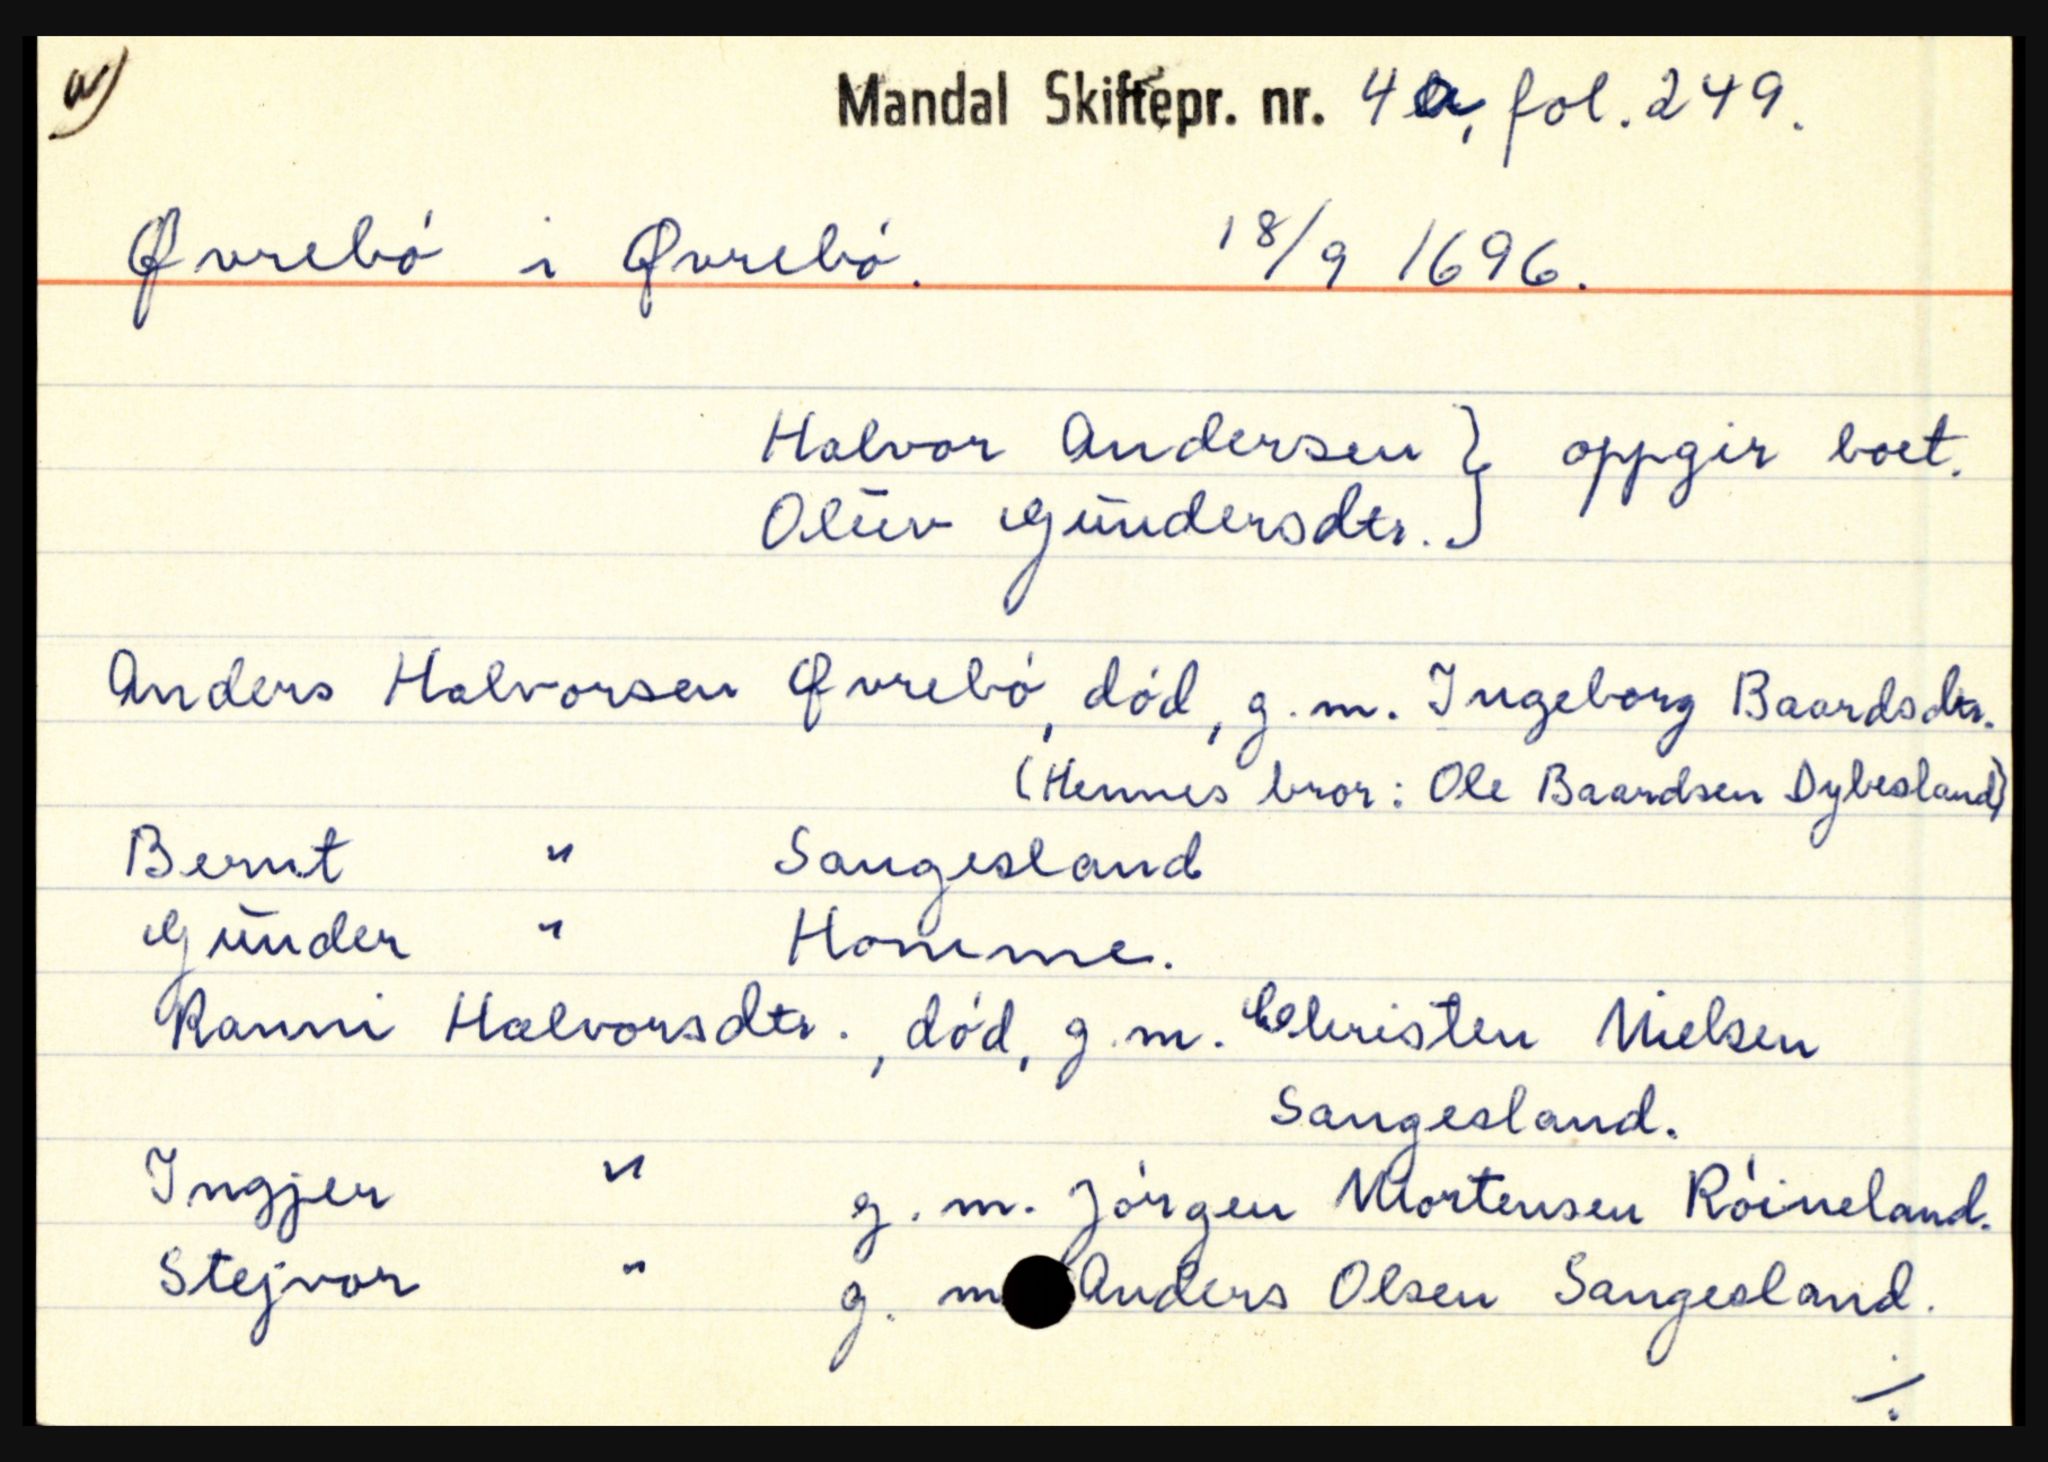 Mandal Skiftepr. nr. 4a, fol. 249.
Øvrebó i Øvrebó. 18/9 1696.
Halvor Andersen } oppgir boet.
Oluv Gundersdtr. }
Anders Halvorsen Øvrebó, död, g.m. Ingeborg Baardsdtr.
(Hennes bror: Ole Baardsen Dybesland)
Bernt " Sangesland
Gunder " Homme.
Ranni Halvorsdtr., död, g.m. Christen Nielsen
Sangesland.
Ingjer " g.m. Jörgen Mortensen Róineland.
Stejvor " g.m. Anders Olsen Sangesland.
./.